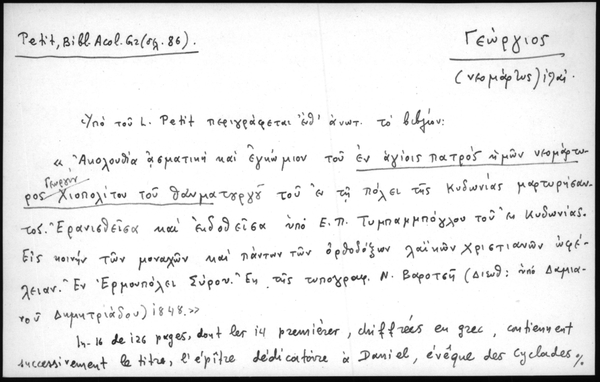 Petit, Bibl. Acol. Gr (σελ. 86).
Γεώργιος
(νεομάρτυς) ιλαι.
Ὑπὸ τοῦ L. Petit περιγράφεται ἔνθ' ἀνωτ. τὸ βιβλίον:
« Ἀκολουθία ᾀσματικὴ καὶ ἐγκώμιον τοῦ ἐν ἁγίοις πατρὸς ἡμῶν νεομάρτυ-
Γεωργίου
ρος Χιοπολίτου τοῦ θαυματουργοῦ τοῦ ἐν τῇ πόλει τῆς Κυδωνίας μαρτυρήσαν-
τος. Ἐρανισθεῖσα καὶ ἐκδοθεῖσα ὑπὸ Ε. Π. Τυμπαμπόγλου τοῦ ἐκ Κυδωνίας.
Εἰς κοινὴν τῶν μοναχῶν καὶ πάντων τῶν ὀρθοδόξων λαϊκῶν Χριστιανῶν ὠφέ-
λειαν. Ἐν Ἑρμουπόλει Σύρου. Ἐκ τῆς τυπογραφ. Ν. Βαροτσῆ (Διευθ: ὑπὸ Δαμια-
νοῦ Δημητριάδου) 1848.»
In-16 de 126 pages, dont les 14 premières, chiffrées en grec, contiennent
successivement le titre, l'épître dédicatoire à Daniel, évêque des Cyclades %